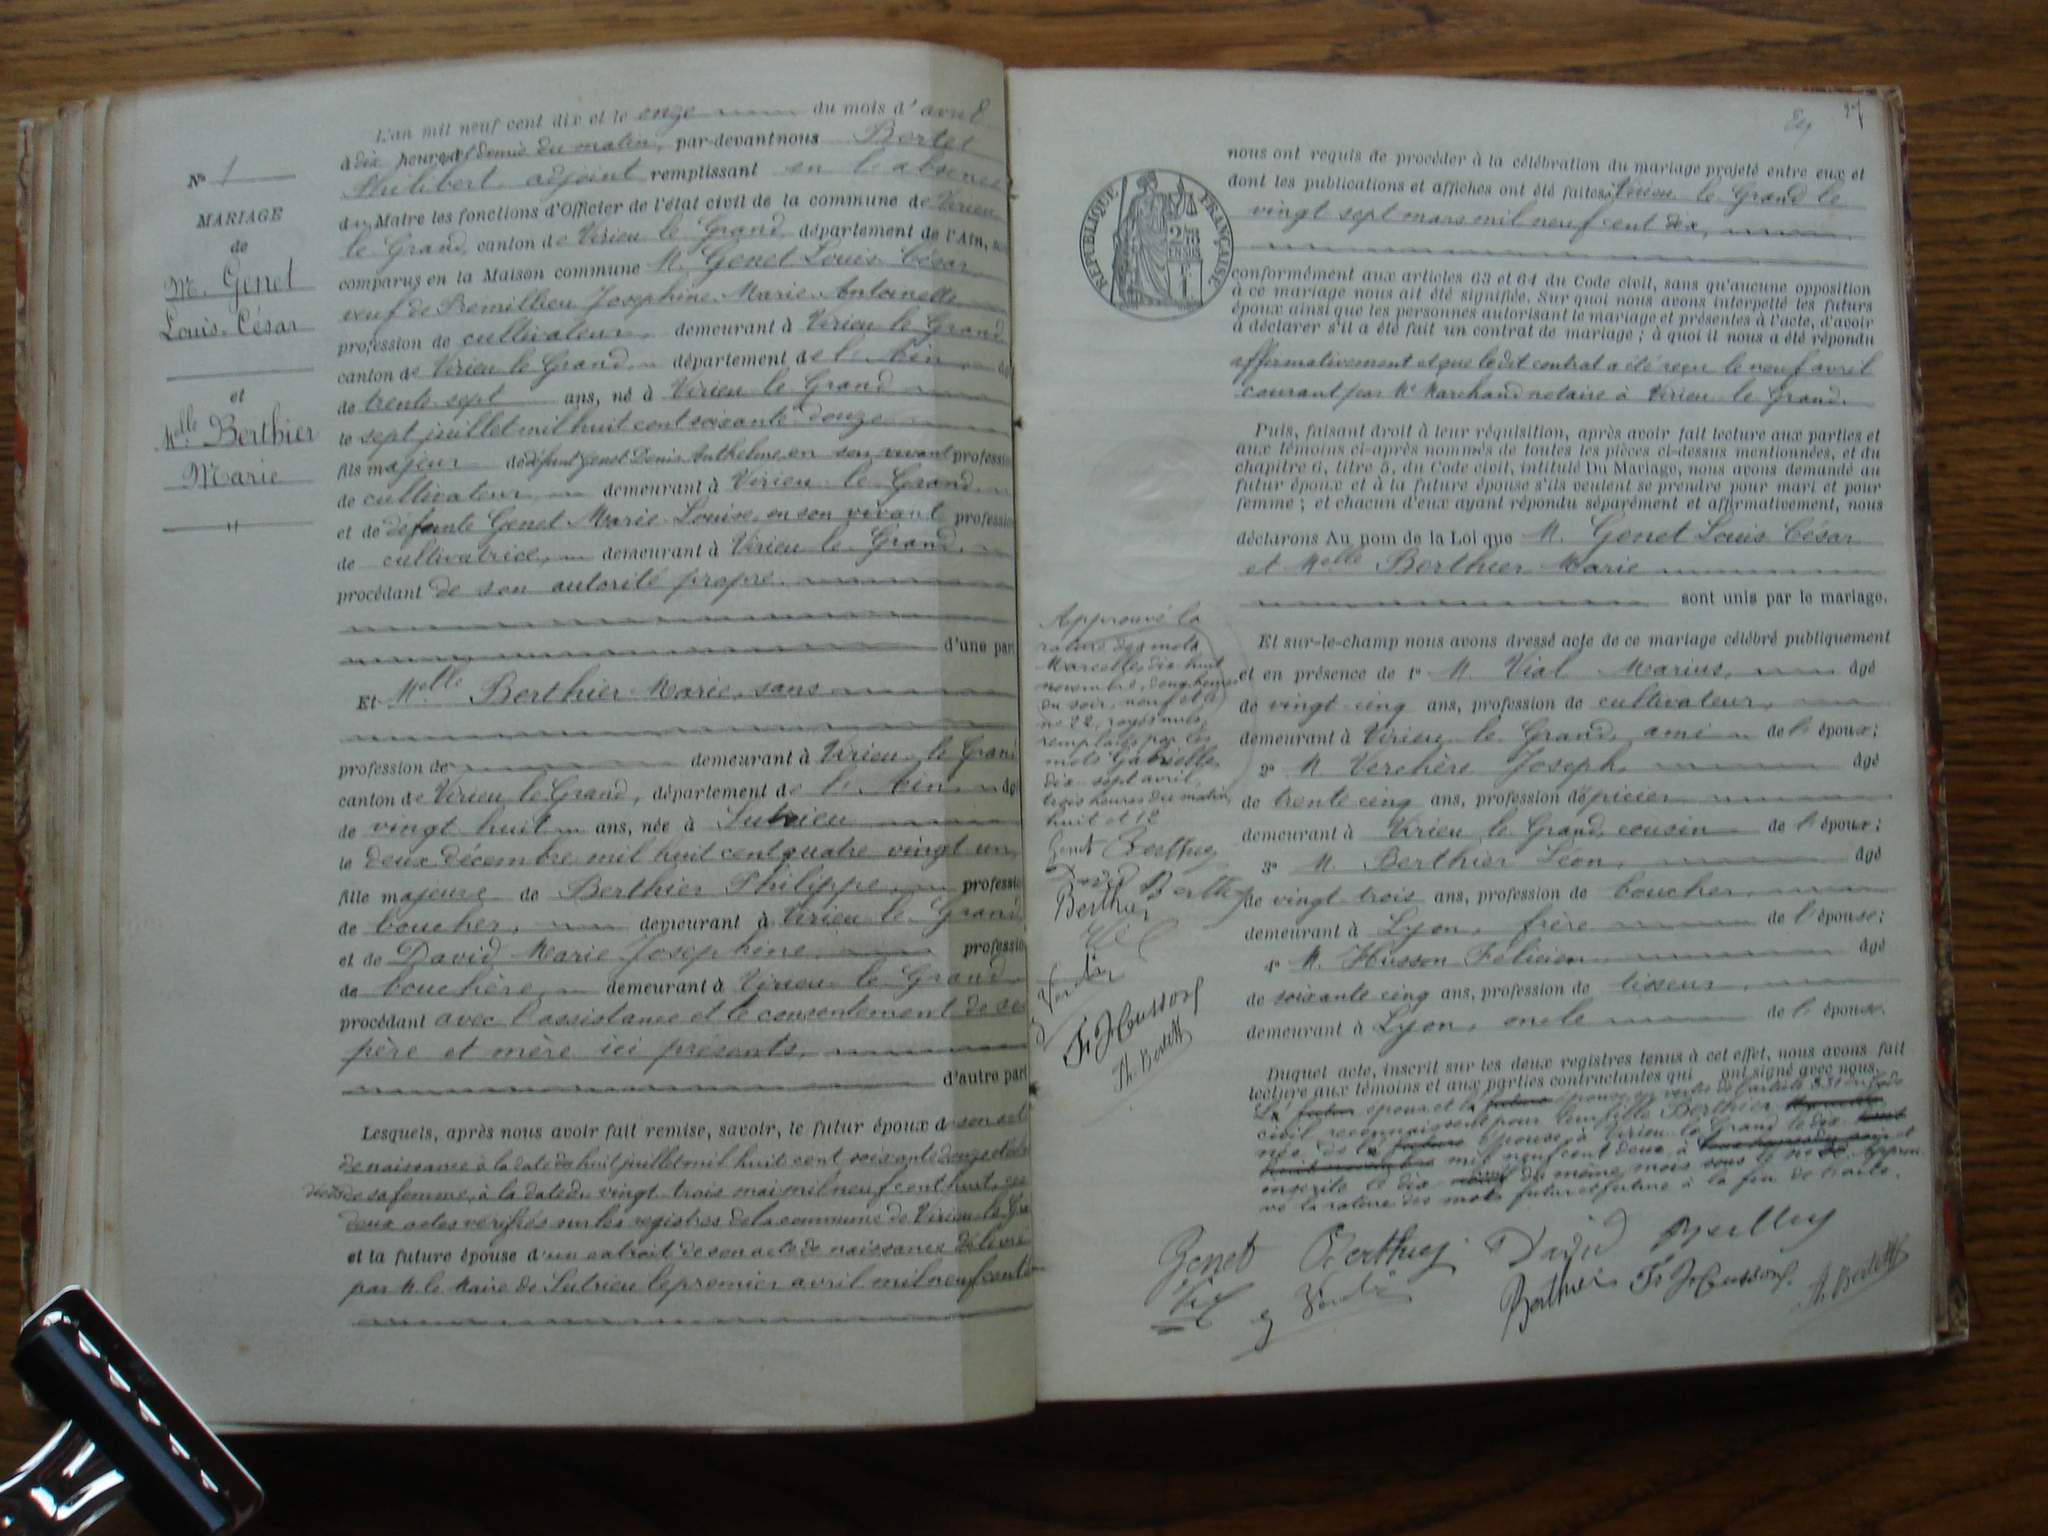 N° 1
MARIAGE
de
M. Genet
Louis César
et
Melle Berthier
Marie
L'an mil neuf cent dix et le onze du mois d'avril
à dix heures et demie du matin, par-devant nous Bertet
Philibert adjoint remplissant en l'absence
du Maire les fonctions d'Officier de l'état civil de la commune de Virieu
le Grand, canton de Virieu le Grand, département de l'Ain,
comparus en la Maison commune M. Genet Louis César
veuf de Prémillieu Joséphine Marie Antoinette
profession de cultivateur, demeurant à Virieu le Grand
canton de Virieu le Grand, département de l'Ain
de trente sept ans, né à Virieu le Grand
le sept juillet mil huit cent soixante douze
fils majeur de défunt Genet Denis Anthelme, en son vivant profession
de cultivateur demeurant à Virieu le Grand
et de défunte Genet Marie Louise, en son vivant profession
de cultivatrice, demeurant à Virieu le Grand,
procédant de son autorité propre
d'une part
Et Melle Berthier Marie, sans
profession de demeurant à Virieu le Grand
canton de Virieu le Grand, département de l'Ain, âgé
de vingt huit ans, née à Sutrieu
le deux décembre mil huit cent quatre vingt un,
fille majeure de Berthier Philippe, profession
de boucher, demeurant à Virieu le Grand
et de David Marie Joséphine, profession
de bouchère demeurant à Virieu le Grand
procédant avec l'assistance et le consentement de ses
père et mère ici présents,
d'autre part
Lesquels, après nous avoir fait remise, savoir, le futur époux de son acte
de naissance à la date du huit juillet mil huit cent soixante douze et de
décès de sa femme, à la date du vingt trois mai mil neuf cent huit, ces
deux actes vérifiés sur les registres de la commune de Virieu le Gra
et la future épouse d'un extrait de son acte de naissance délivré
par M. le Maire de Sutrieu le premier avril mil neuf cent
27
RÉPUBLIQUE FRANÇAISE
nous ont requis de procéder à la célébration du mariage projeté entre eux et
dont les publications et affiches ont été faites à Virieu le Grand le
vingt sept mars mil neuf cent dix,
conformément aux articles 63 et 64 du Code civil, sans qu'aucune opposition
à ce mariage nous ait été signifiée. Sur quoi nous avons interpellé les futurs
époux ainsi que les personnes autorisant le mariage et présentes à l'acte, d'avoir
à déclarer s'il a été fait un contrat de mariage ; à quoi il nous a été répondu
affirmativement et que ledit contrat a été reçu le neuf avril
courant par Me Marchand notaire à Virieu le Grand.
Puis, faisant droit à leur réquisition, après avoir fait lecture aux parties et
aux témoins ci-après nommés de toutes les pièces ci-dessus mentionnées, et du
chapitre 6, titre 5, du Code civil, intitulé Du Mariage, nous avons demandé au
futur époux et à la future épouse s'ils veulent se prendre pour mari et pour
femme ; et chacun d'eux ayant répondu séparément et affirmativement, nous
déclarons Au nom de la Loi que M. Genet Louis César
et Melle Berthier Marie
sont unis par le mariage.
Et sur-le-champ nous avons dressé acte de ce mariage célébré publiquement
et en présence de 1° M. Vial Marius, âgé
de vingt cinq ans, profession de cultivateur,
demeurant à Virieu le Grand, ami de l'époux;
2° M. Verchère Joseph, âgé
de trente cinq ans, profession d'épicier
demeurant à Virieu le Grand, cousin de l'époux;
3° M. Berthier Léon, âgé
de vingt trois ans, profession de boucher,
demeurant à Lyon, frère de l'épouse;
4° M. Husson Félicien âgé
de soixante cinq ans, profession de tisseur,
demeurant à Lyon, oncle de l'épouse.
Duquel acte, inscrit sur les deux registres tenus à cet effet, nous avons fait
lecture aux témoins et aux parties contractantes qui ont signé avec nous.
Le futur époux et la future épouse en vertu de l'article 331 du Code
civil reconnaissent pour leur fille Berthier Marcelle
née de la future épouse à Virieu le Grand le dix huit
novembre mil neuf cent deux à
inscrite le dix neuf du même mois sous le no 22. Approu
vé la rature des mots futur et future à la fin de l'acte.
Approuvé la
rature des mots
Marcelle, dix huit
novembre, deux heures
du soir, neuf et le
no 22, rayés nuls,
remplacés par les
mots Gabrielle,
dix sept avril,
trois heures du matin,
huit et 12
Genet Berthier
David Berthier
Berthier
Vial
F. Husson
Ph. Bertet
Genet Berthier David Berthier
Vial Berthier F. Husson Ph. Bertet